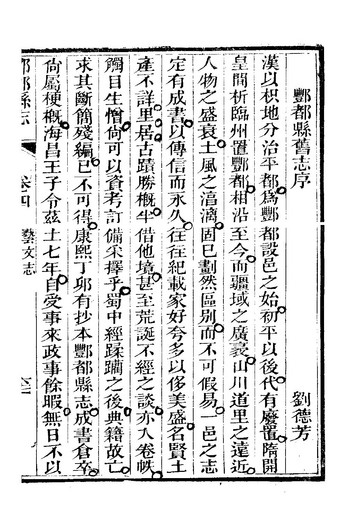 酆都縣舊志序
劉德芳
漢以枳地分治平都為酆都設邑之始初平以後代有廢置隋開
皇間析臨州置酆都相沿至今而疆域之廣袤山川道里之遠近
人物之盛衰土風之湻漓固已劃然區別而不可假易一邑之志
定有成書以傳信而永久往往紀載家好夸多以侈美盛名賢土
產不詳里居古蹟勝概半借他境甚至荒誕不經之談亦入卷帙
觸目生憎尚可以資考訂備采擇乎蜀中經蹂躪之後典籍故亡
求其斷簡殘編已不可得康熙丁卯有抄本酆都縣志成書倉卒
尚屬梗概海昌王子令茲土七年自受事來政事餘暇無日不以
酆都縣志
卷四
藝文志